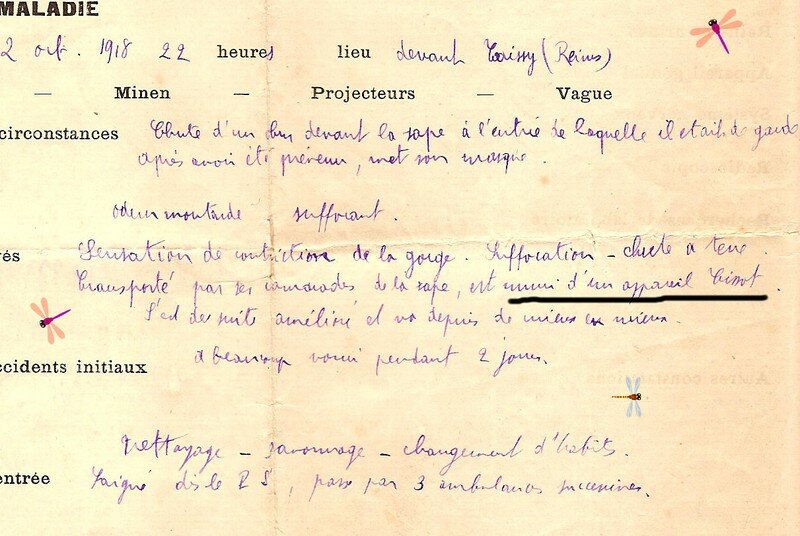 MALADIE
2 oct. 1918 22 heures lieu devant Taissy (Reims)
— Minen — Projecteurs — Vague
circonstances Chute d'un obus devant la sape à l'entrée de laquelle il était de garde
après avoir été prévenu, met son masque.
odeur moutarde suffocant.
rés Sensation de contriction de la gorge. Suffocation - chute à terre.
Transporté par ses camarades de la sape, est muni d'un appareil Tissot.
S'est de suite amélioré et va depuis de mieux en mieux.
ccidents initiaux a beaucoup vomi pendant 2 jours.
Nettoyage - savonnage - changement d'habits.
entrée Saigné dès le P S, passe par 3 ambulances successives.